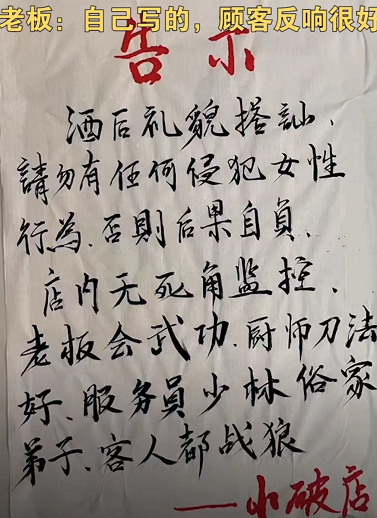 老板：自己写的，顾客反响很好
告示
酒后礼貌搭訕、
請勿有任何侵犯女性
行為、否則后果自負、
店内无死角监控、
老板会武功、厨师刀法
好、服务員少林俗家
弟子、客人都战狼
——小破店